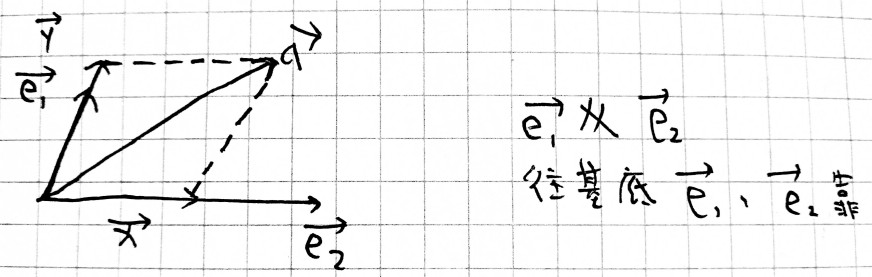 y⃗
e⃗₁
a⃗
x⃗
e⃗₂
e⃗₁ ∦ e⃗₂
往基底 e⃗₁、e⃗₂ 靠